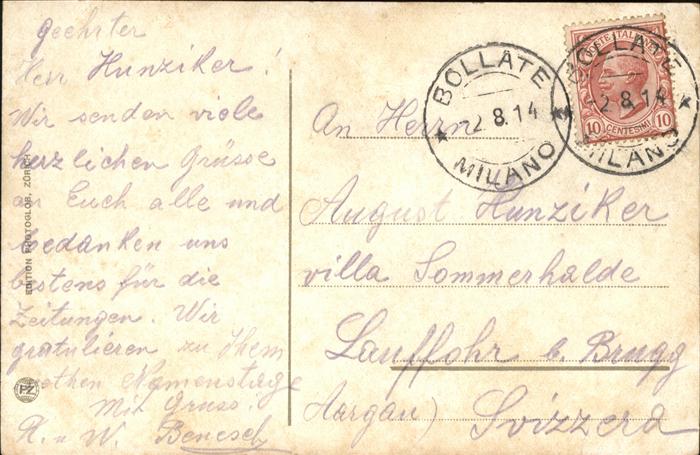 geehrter
Herr Hunziker!
Wir senden viele
herzlichen Grüsse
an Euch alle und
bedanken uns
bestens für die
Zeitungen. Wir
gratulieren zu Ihem
Namenstage
Mit Gruss!
R. u W. Benesch
EDITION PHOTOGLOB, ZÜRICH
PZ
BOLLATE
-2.8.14
MILANO
BOLLATE
-2.8.14
MILANO
POSTE ITALIANE
10 CENTESIMI 10
An Herrn
August Hunziker
villa Sommerhalde
Lauffohr b. Brugg
Aargau) Svizzera